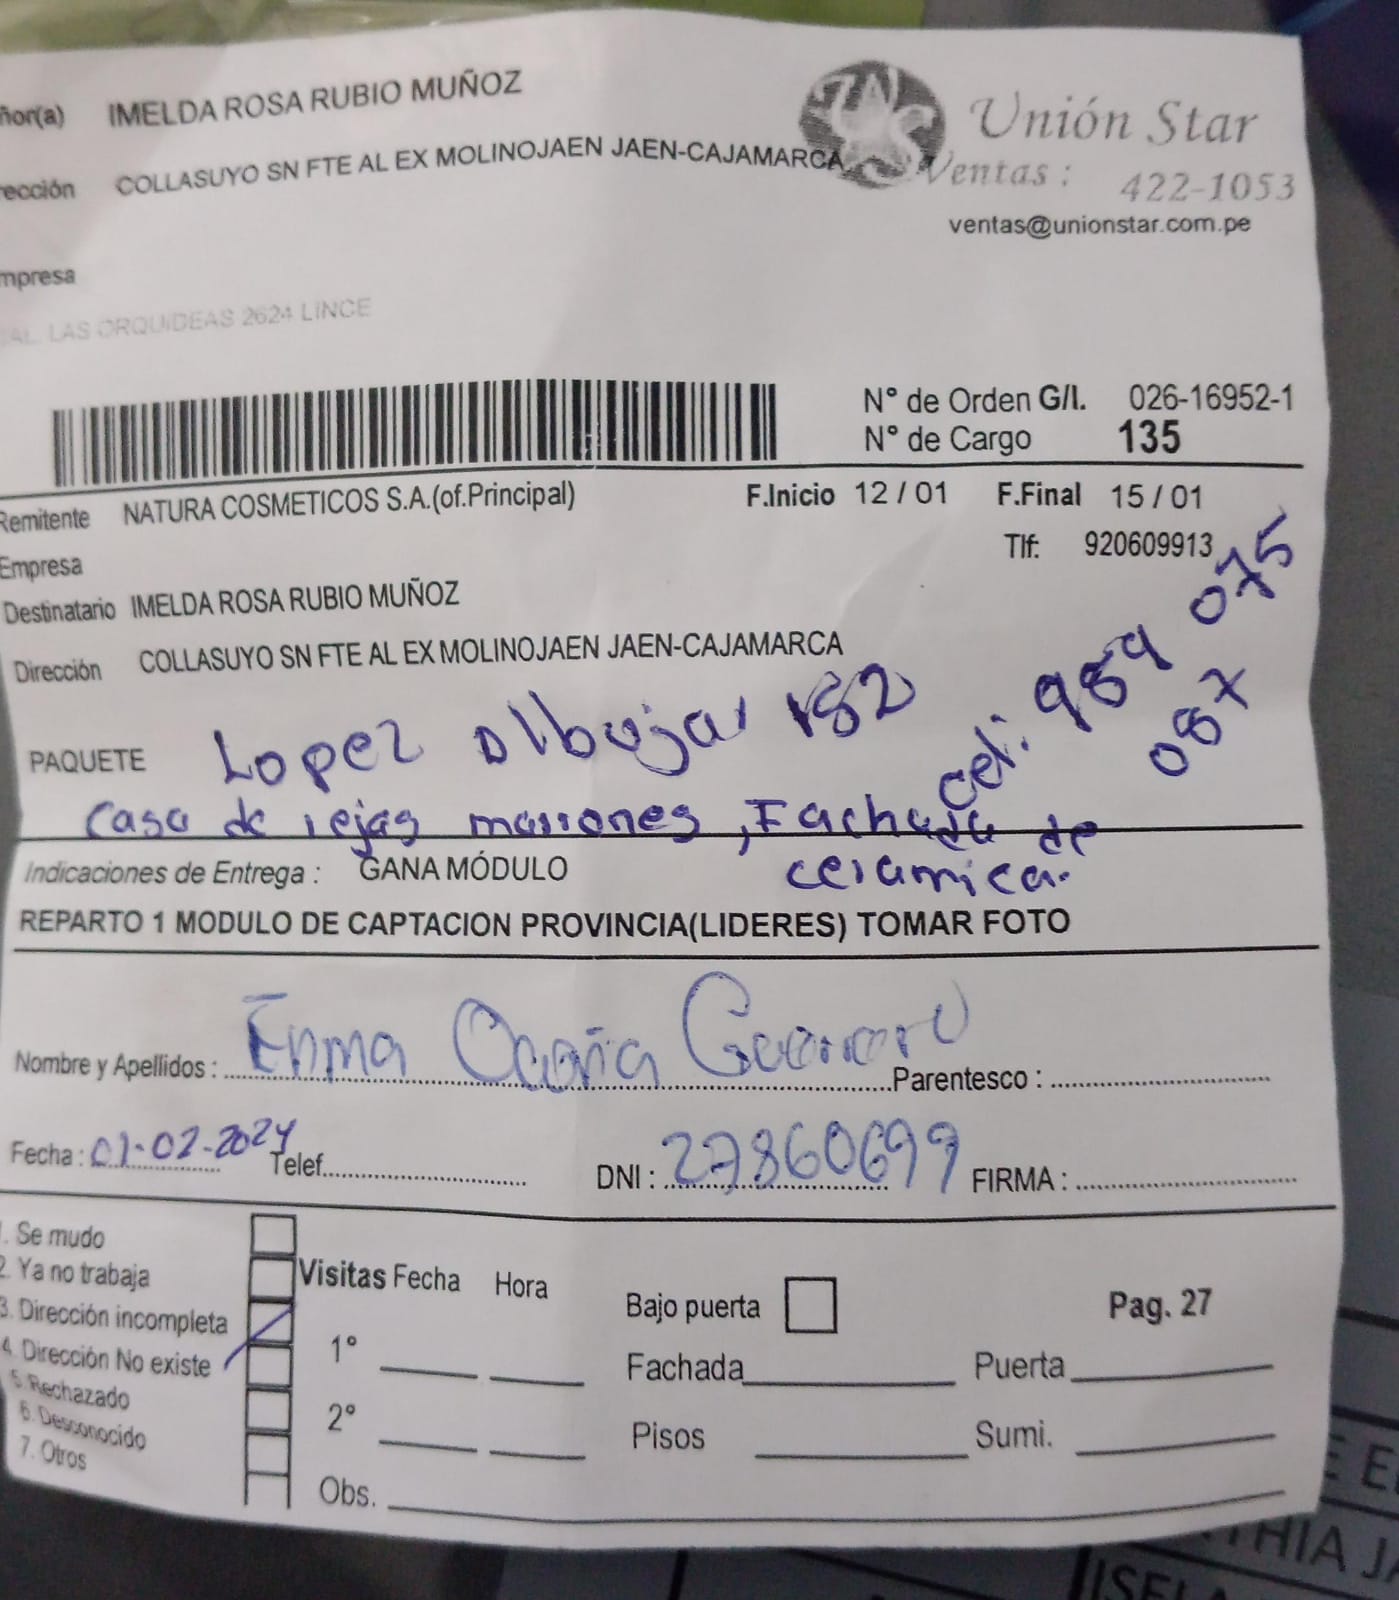 ñor(a) IMELDA ROSA RUBIO MUÑOZ
Unión Star
rección COLLASUYO SN FTE AL EX MOLINOJAEN JAEN-CAJAMARCA
Ventas : 422-1053
ventas@unionstar.com.pe
mpresa
CAL. LAS ORQUIDEAS 2624 LINCE
N° de Orden G/I. 026-16952-1
N° de Cargo 135
Remitente NATURA COSMETICOS S.A.(of.Principal) F.Inicio 12 / 01 F.Final 15 / 01
Empresa Tlf: 920609913
Destinatario IMELDA ROSA RUBIO MUÑOZ
Dirección COLLASUYO SN FTE AL EX MOLINOJAEN JAEN-CAJAMARCA
cel: 989 075
087
PAQUETE Lopez Albujar 182
casa de rejas marrones, Fachada de
ceramica.
Indicaciones de Entrega : GANA MÓDULO
REPARTO 1 MODULO DE CAPTACION PROVINCIA(LIDERES) TOMAR FOTO
Nombre y Apellidos : Enma Ocaña Parentesco :
Fecha : 01-02-2024 Telef. DNI : 27860699 FIRMA :
1. Se mudo
2. Ya no trabaja
3. Dirección incompleta
4. Dirección No existe
5. Rechazado
6. Desconocido
7. Otros
Visitas Fecha Hora
1°
2°
Obs.
Bajo puerta Pag. 27
Fachada Puerta
Pisos Sumi.